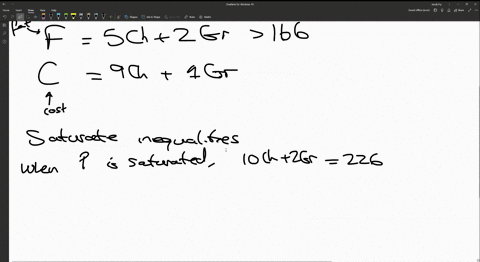 fat
F = 5Ch + 2Gr > 166
C = 9Ch + 1Gr
cost
Saturate inequalities
when P is saturated, 10Ch+2Gr = 226